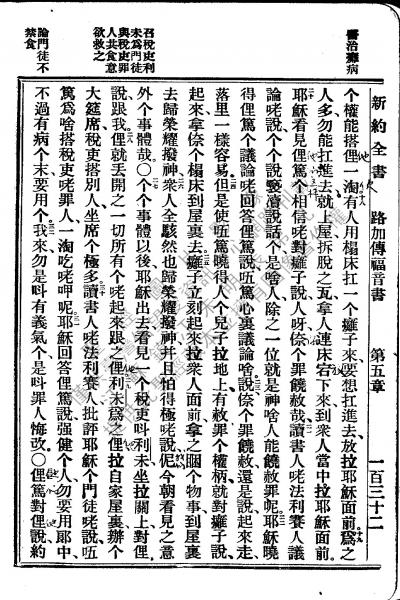 醫治癱病
召稅吏利
未爲門徒
與稅吏罪
人共食意
欲救之
論門徒不
禁食
新約全書 路加傳福音書 第五章 一百三十二
個權能搭俚一淘有人用榻床扛一個癱子來要想扛進去放拉耶穌面前爲之
人多勿能扛進去就上屋拆脫之瓦拿人連床宕下來到衆人當中拉耶穌面前
耶穌看見俚篤個相信咾對癱子說人呀㑚個罪饒赦哉讀書人咾法利賽人議
論咾說個個說褻瀆說話個是啥人除之一位就是神啥人能饒赦罪呢耶穌曉
得俚篤個議論咾回答俚篤說㑚篤心裏議論啥說㑚個罪饒赦還是說起來走
落里一樣容易但是使㑚篤曉得人個兒子拉地上有赦罪個權柄就對癱子說
起來拿㑚個榻床到屋裏去癱子立刻起來拉衆人面前拿之睏個物事到屋裏
去歸榮耀撥神衆人全駭然也歸榮耀撥神幷且怕得極咾說伲今朝看見之意
外個事體哉〇個個事體以後耶穌出去看見一個稅吏呌利未坐拉關上對俚
說跟我俚就丟開之一切所有個咾起來跟之俚利未爲之俚拉自家屋裏辦個
大筵席稅吏搭別人坐席個極多讀書人咾法利賽人批評耶穌個門徒咾說㑚
篤爲啥搭稅吏咾罪人一淘吃咾呷呢耶穌回答俚篤說强健個人勿要用郎中
不過有病個末要用個我來勿是呌有義氣個是呌罪人悔改〇俚篤對俚說約